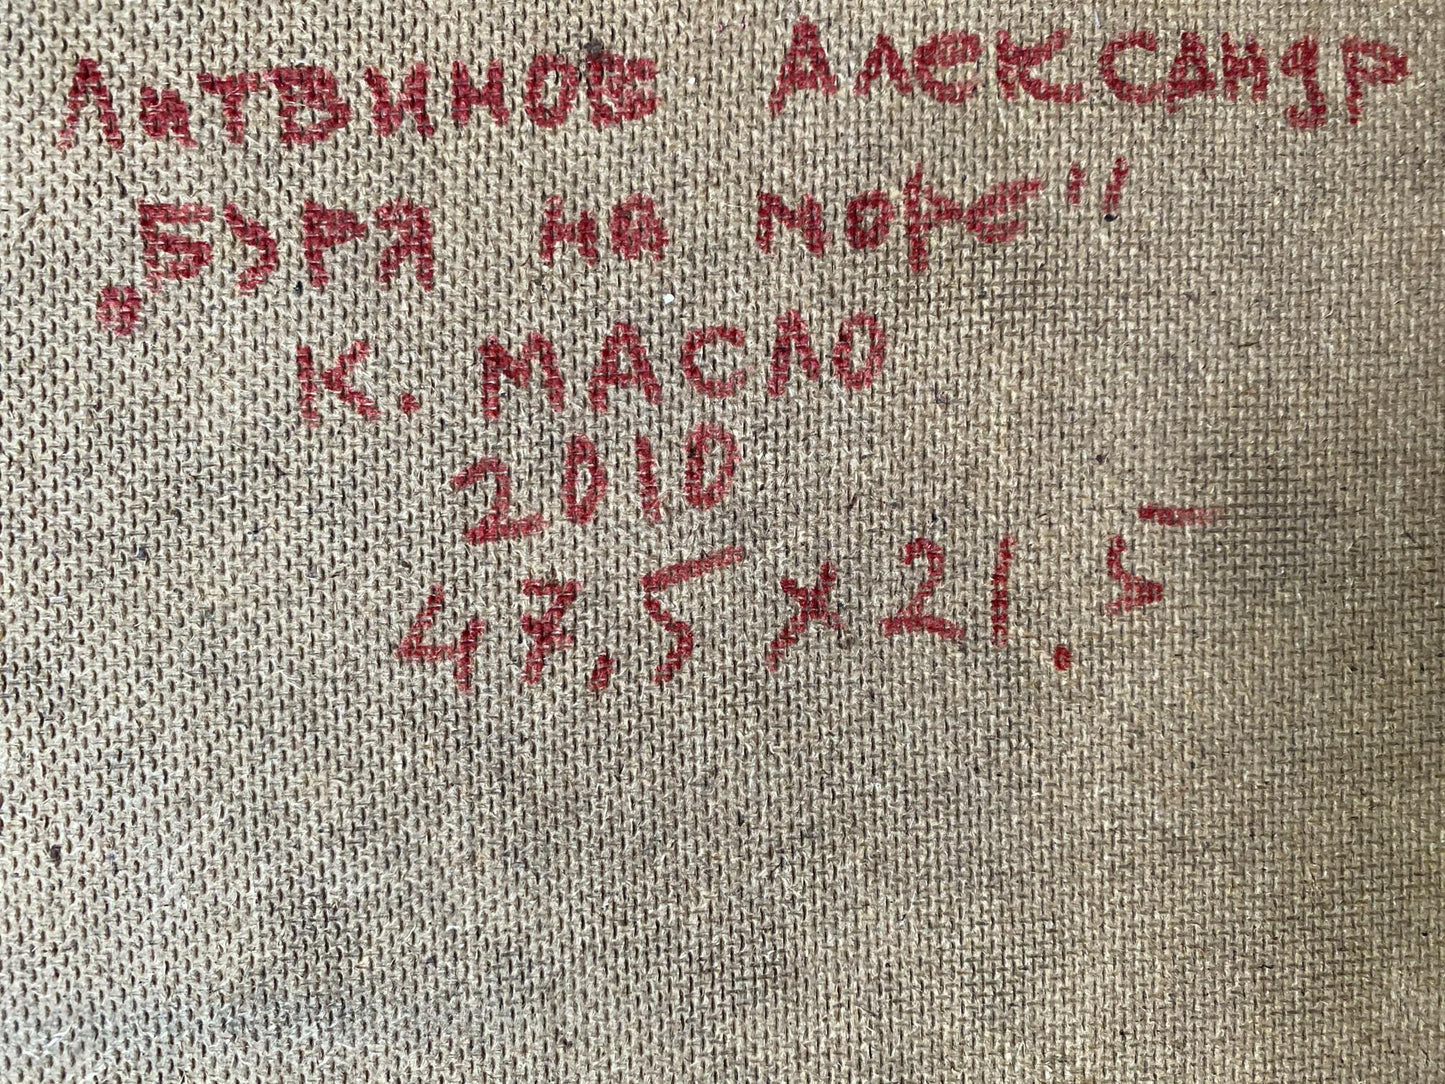 Литвинов Александр
„Буря на море"
К. МАСЛО
2010
47,5 x 21.5